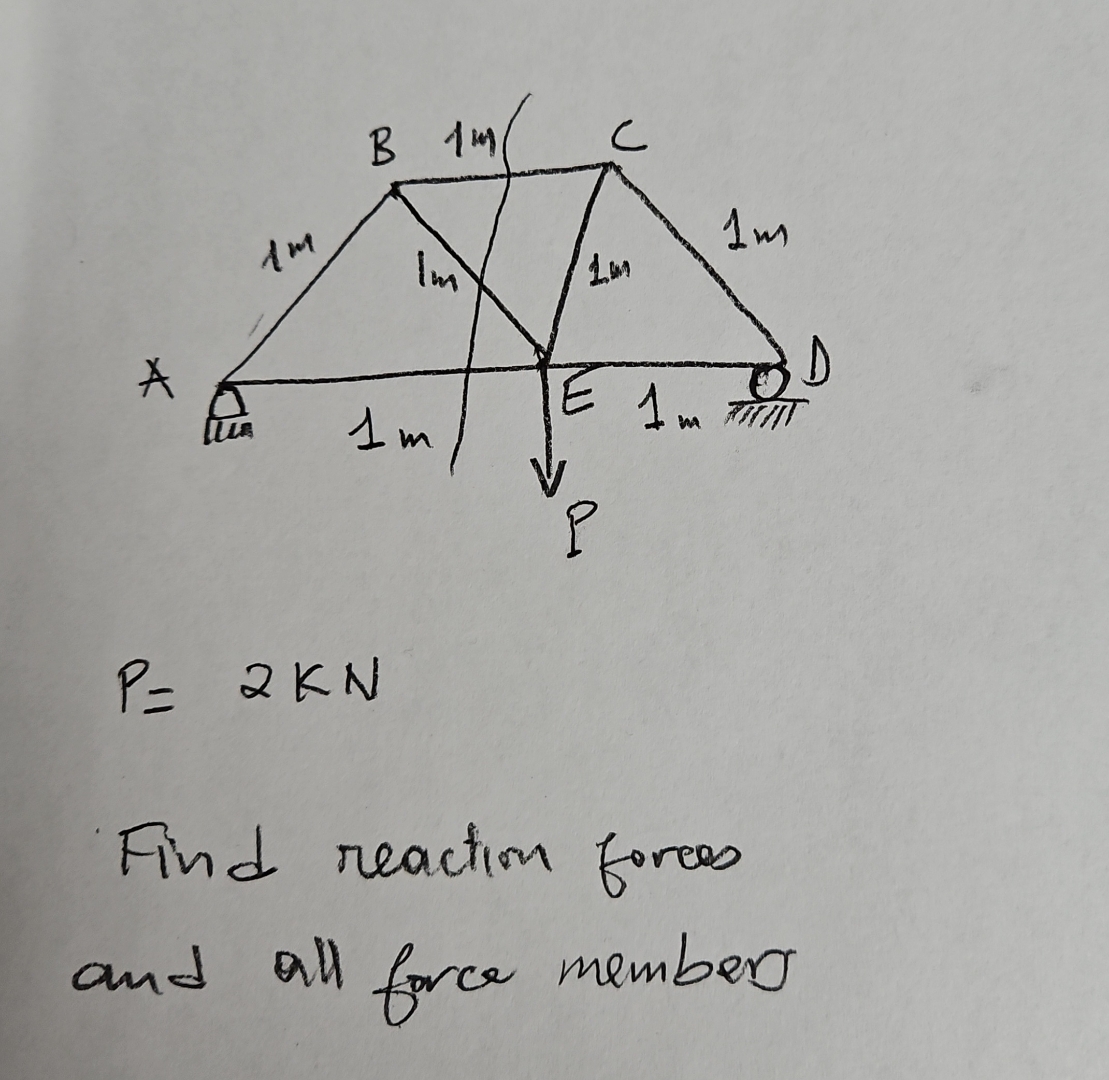 B 1m C
1m 1m 1m 1m
A E D
1m 1m
P
P= 2KN
Find reaction forces
and all force members